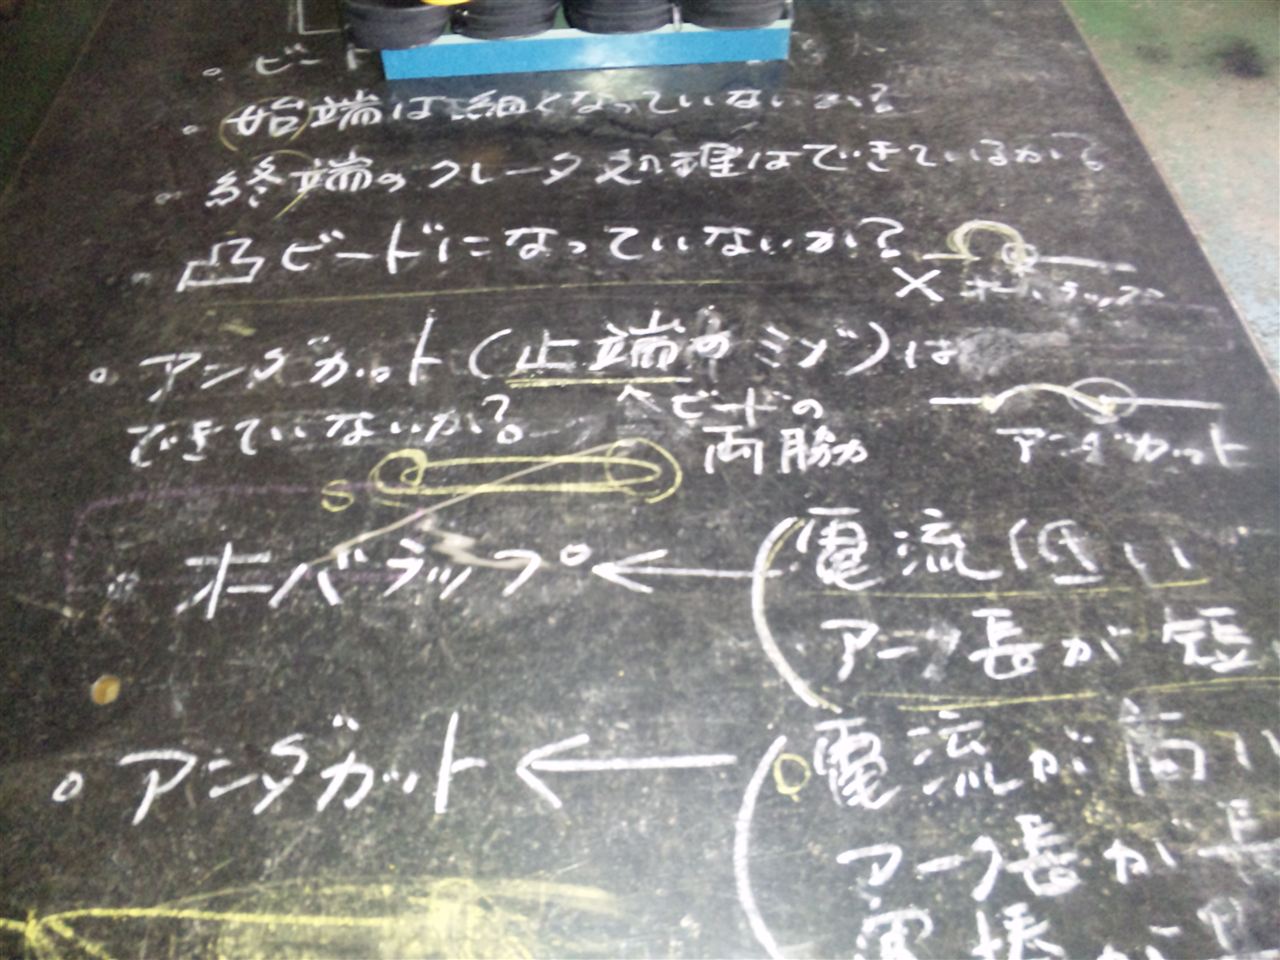 。ビード
・始端は細くなっていないか?
・終端のクレータ処理はできているか?
・凸ビードになっていないか?
× オーバラップ
。アンダカット(止端のミゾ)は
できていないか?
ビードの
両脇
アンダカット
S
オーバラップ ← (電流低い
アーク長が短
。アンダカット ← (電流が高い
アーク長が長
運捧が